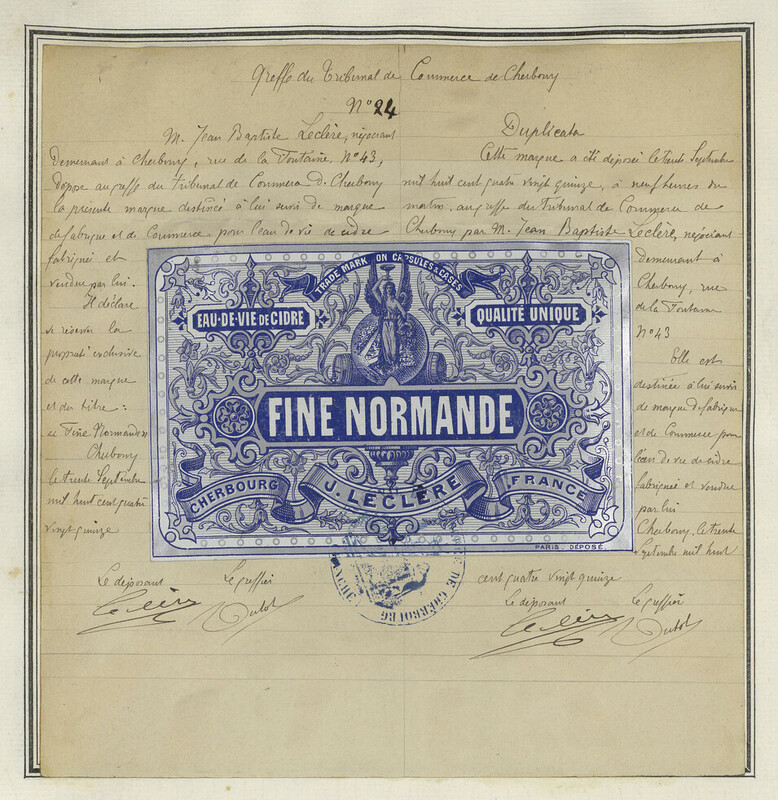 Greffe du Tribunal de Commerce de Cherbourg
N° 24
M. Jean Baptiste Leclère, négociant
Demeurant à Cherbourg, rue de la Fontaine, N° 43,
Dépose au greffe du Tribunal de Commerce de Cherbourg
la présente marque destinée à lui servir de marque
de fabrique et de Commerce pour l'eau de vie de cidre
fabriquée et
vendue par lui.
Il déclare
se réserver la
propriété exclusive
de cette marque
et du titre :
Fine Normande
Cherbourg
le trente Septembre
mil huit cent quatre
vingt quinze
Le déposant Le greffier
Leclère Dutot
Duplicata
Cette marque a été déposée le trente Septembre
mil huit cent quatre vingt quinze, à neuf heures du
matin, au greffe du Tribunal de Commerce de
Cherbourg par M. Jean Baptiste Leclère, négociant
Demeurant à
Cherbourg, rue
de la Fontaine
N° 43
Elle est
destinée à lui servir
de marque de fabrique
et de Commerce pour
l'eau de vie de cidre
fabriquée et vendue
par lui
Cherbourg, le trente
Septembre mil huit
cent quatre vingt quinze
Le déposant Le greffier
Leclère Dutot
TRADE MARK ON CAPSULES & CASES
EAU-DE-VIE DE CIDRE
QUALITÉ UNIQUE
FINE NORMANDE
CHERBOURG J. LECLÈRE FRANCE
PARIS DÉPOSÉ
DE CHERBOURG